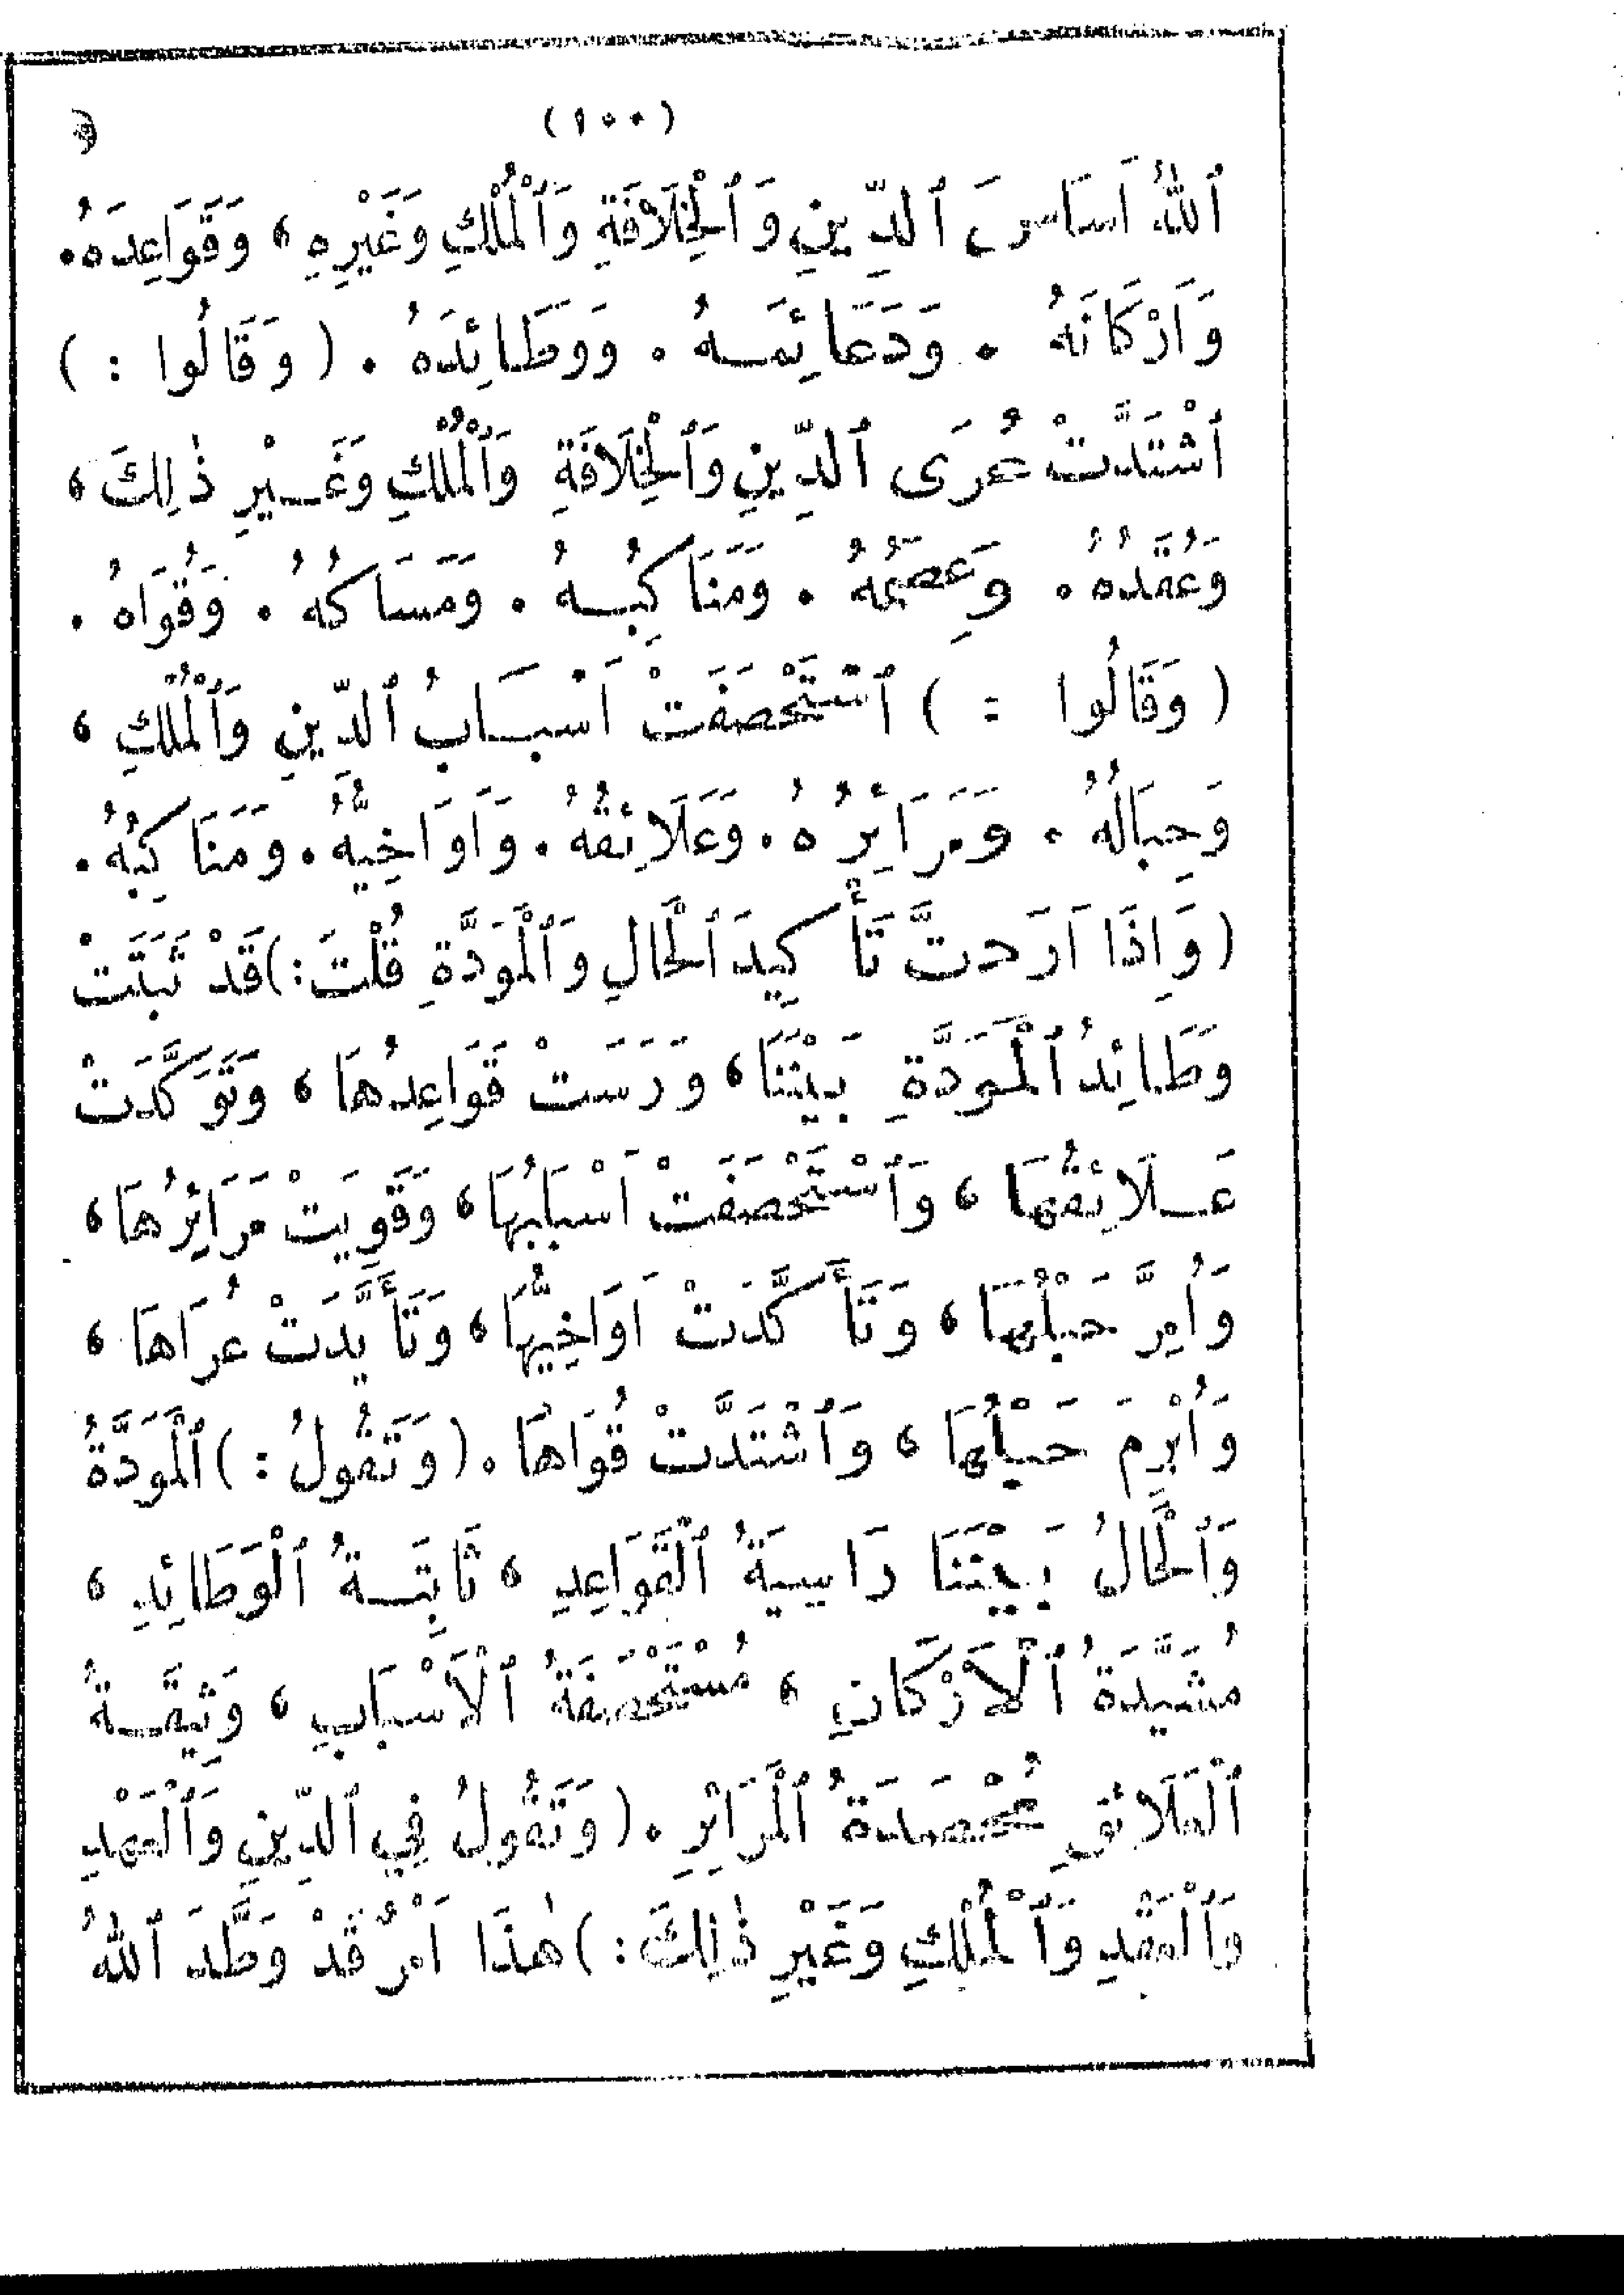 (١٠٠)
ٱللهُ اَسَاسَ ٱلدِّينِ وَٱلْخِلَافَةِ وَٱلْمُلْكِ وَغَيْرِهِ ، وَقَوَاعِدَهُ .
وَاَرْكَانَهُ . وَدَعَائِمَهُ . وَوَطَائِدَهُ . ( وَقَالُوا : )
ٱشْتَدَّتْ عُرَى ٱلدِّينِ وَٱلْخِلَافَةِ وَٱلْمُلْكِ وَغَيْرِ ذٰلِكَ ،
وَعُقَدُهُ . وَعِصَمُهُ . وَمَنَاكِبُهُ . وَمَسَاكُهُ . وَقُوَاهُ .
( وَقَالُوا : ) ٱسْتَحْصَفَتْ اَسْبَابُ ٱلدِّينِ وَٱلْمُلْكِ ،
وَحِبَالُهُ . وَمَرَائِرُهُ . وَعَلَائِقُهُ . وَاَوَاخِيُّهُ . وَمَنَاكِبُهُ .
( وَاِذَا اَرَدتَّ تَأْكِيدَ ٱلْحَالِ وَٱلْمَوَدَّةِ قُلْتَ : ) قَدْ ثَبَتَتْ
وَطَائِدُ ٱلْمَوَدَّةِ بَيْنَنَا ، وَرَسَتْ قَوَاعِدُهَا ، وَتَوَكَّدَتْ
عَلَائِقُهَا ، وَٱسْتَحْصَفَتْ اَسْبَابُهَا ، وَقَوِيَتْ مَرَائِرُهَا ،
وَاُمِرَّ حَبْلُهَا ، وَتَأَكَّدَتْ اَوَاخِيُّهَا ، وَتَأَيَّدَتْ عُرَاهَا ،
وَاُبْرِمَ حَبْلُهَا ، وَٱشْتَدَّتْ قُوَاهَا . ( وَتَقُولُ : ) ٱلْمَوَدَّةُ
وَٱلْحَالُ بَيْنَنَا رَاسِيَةُ ٱلْقَوَاعِدِ ، ثَابِتَةُ ٱلْوَطَائِدِ ،
مُشَيَّدَةُ ٱلْاَرْكَانِ ، مُسْتَحْصَفَةُ ٱلْاَسْبَابِ ، وَثِيقَةُ
ٱلْعَلَائِقِ مُحْصَدَةُ ٱلْمَرَائِرِ . ( وَتَقُولُ فِي ٱلدِّينِ وَٱلْعَهْدِ
وَٱلْعَقْدِ وَٱلْمُلْكِ وَغَيْرِ ذٰلِكَ : ) هٰذَا اَمْرٌ قَدْ وَطَّدَ ٱللهُ